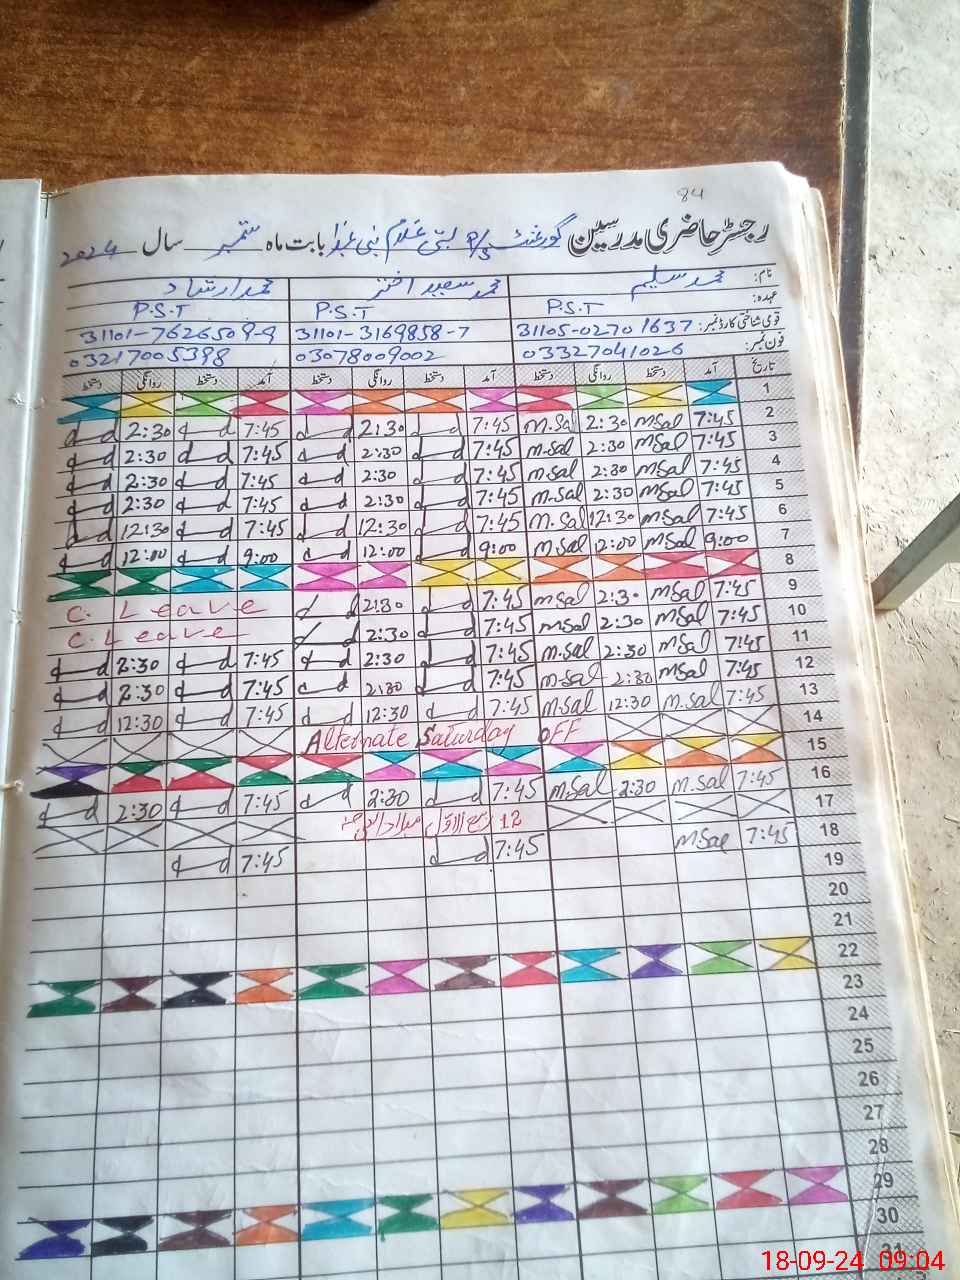 84
رجسٹر حاضری مدرسین گورنمنٹ P/S بستی غلام نبی بابت ماہ ستمبر سال 2024
نام: محمد سلیم محمد سعید اختر محمد ارشاد
عہدہ: P.S.T P.S.T P.S.T
قومی شناختی کارڈ نمبر: 31105-02701637 31101-3169858-7 31101-7626509-9
فون نمبر: 03327041026 03078009002 03217005398
تاریخ آمد دستخط روانگی دستخط آمد دستخط روانگی دستخط آمد دستخط روانگی دستخط
1
2 7:45 M.Sal 2:30 M.Sal 7:45 2:30 7:45 2:30
3 7:45 M.Sal 2:30 M.Sal 7:45 2:30 7:45 2:30
4 7:45 M.Sal 2:30 M.Sal 7:45 2:30 7:45 2:30
5 7:45 M.Sal 2:30 M.Sal 7:45 2:30 7:45 2:30
6 7:45 M.Sal 12:30 M.Sal 7:45 12:30 7:45 12:30
7 9:00 M.Sal 12:00 M.Sal 9:00 12:00 9:00 12:00
8
9 7:45 M.Sal 2:30 M.Sal 7:45 2:30 C. Leave
10 7:45 M.Sal 2:30 M.Sal 7:45 2:30 C. Leave
11 7:45 M.Sal 2:30 M.Sal 7:45 2:30 7:45 2:30
12 7:45 M.Sal 2:30 M.Sal 7:45 2:30 7:45 2:30
13 7:45 M.Sal 12:30 M.Sal 7:45 12:30 7:45 12:30
14 Alternate Saturday OFF
15
16 7:45 M.Sal 2:30 M.Sal 7:45 2:30 7:45 2:30
17 12 ربیع الاول میلاد النبی
18 7:45 M.Sal 7:45 7:45
19
20
21
22
23
24
25
26
27
28
29
30
31
18-09-24 09:04